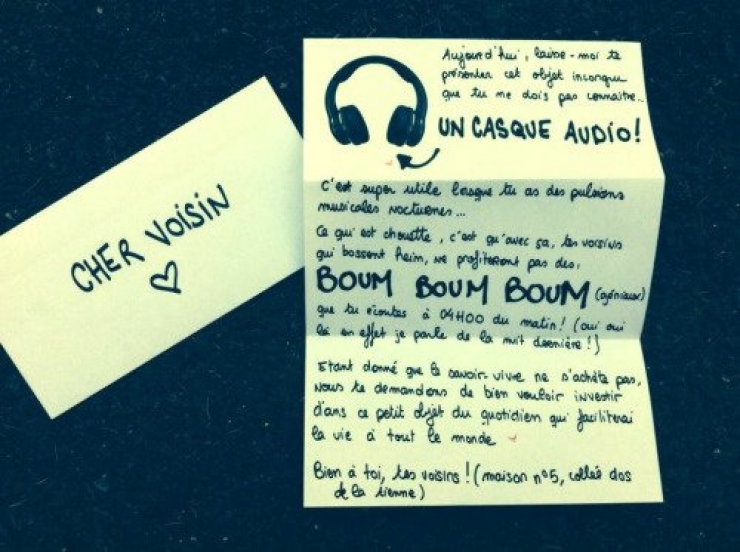 CHER VOISIN
Aujourd'hui, laisse-moi te
présenter cet objet inconnu
que tu ne dois pas connaître...
UN CASQUE AUDIO!
C'est super utile lorsque tu as des pulsions
musicales nocturnes...
Ce qui est chouette, c'est qu'avec ça, tes voisins
qui bossent heim, ne profiteront pas des,
BOUM BOUM BOUM (géniaux)
que tu écoutes à 04H00 du matin! (oui oui
là en effet je parle de la nuit dernière!)
Etant donné que le savoir-vivre ne s'achète pas,
nous te demandons de bien vouloir investir
dans ce petit objet du quotidien qui faciliterai
la vie à tout le monde
Bien à toi, tes voisins! (maison n°5, collée dos
de la tienne)